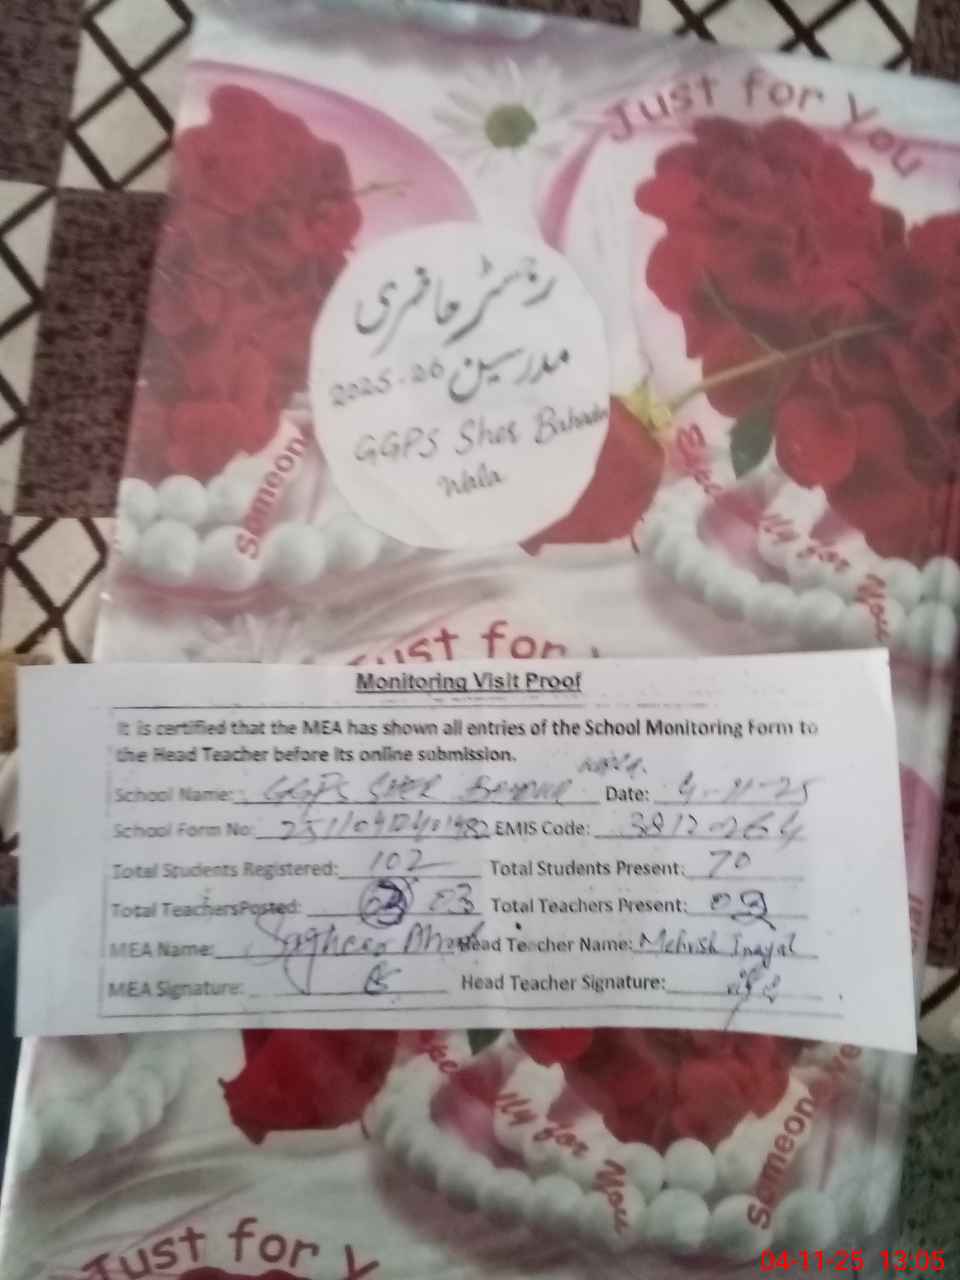 Just for You
رجسٹر حاضری
مدرسین 2025-26
GGPS Sher Bahadur
Wala
Someone
My for You
Just for
Monitoring Visit Proof
It is certified that the MEA has shown all entries of the School Monitoring Form to
the Head Teacher before its online submission.
Wala.
School Name: GGPS SHER Date: 4-11-25
School Form No: EMIS Code: 38120264
Total Students Registered: 102 Total Students Present: 70
Total Teachers Posted: 03 Total Teachers Present: 03
MEA Name: Sagheer Head Teacher Name: Mehvish Inayat
MEA Signature: Head Teacher Signature:
My for You
Someone
Just for Y
04-11-25 13:05